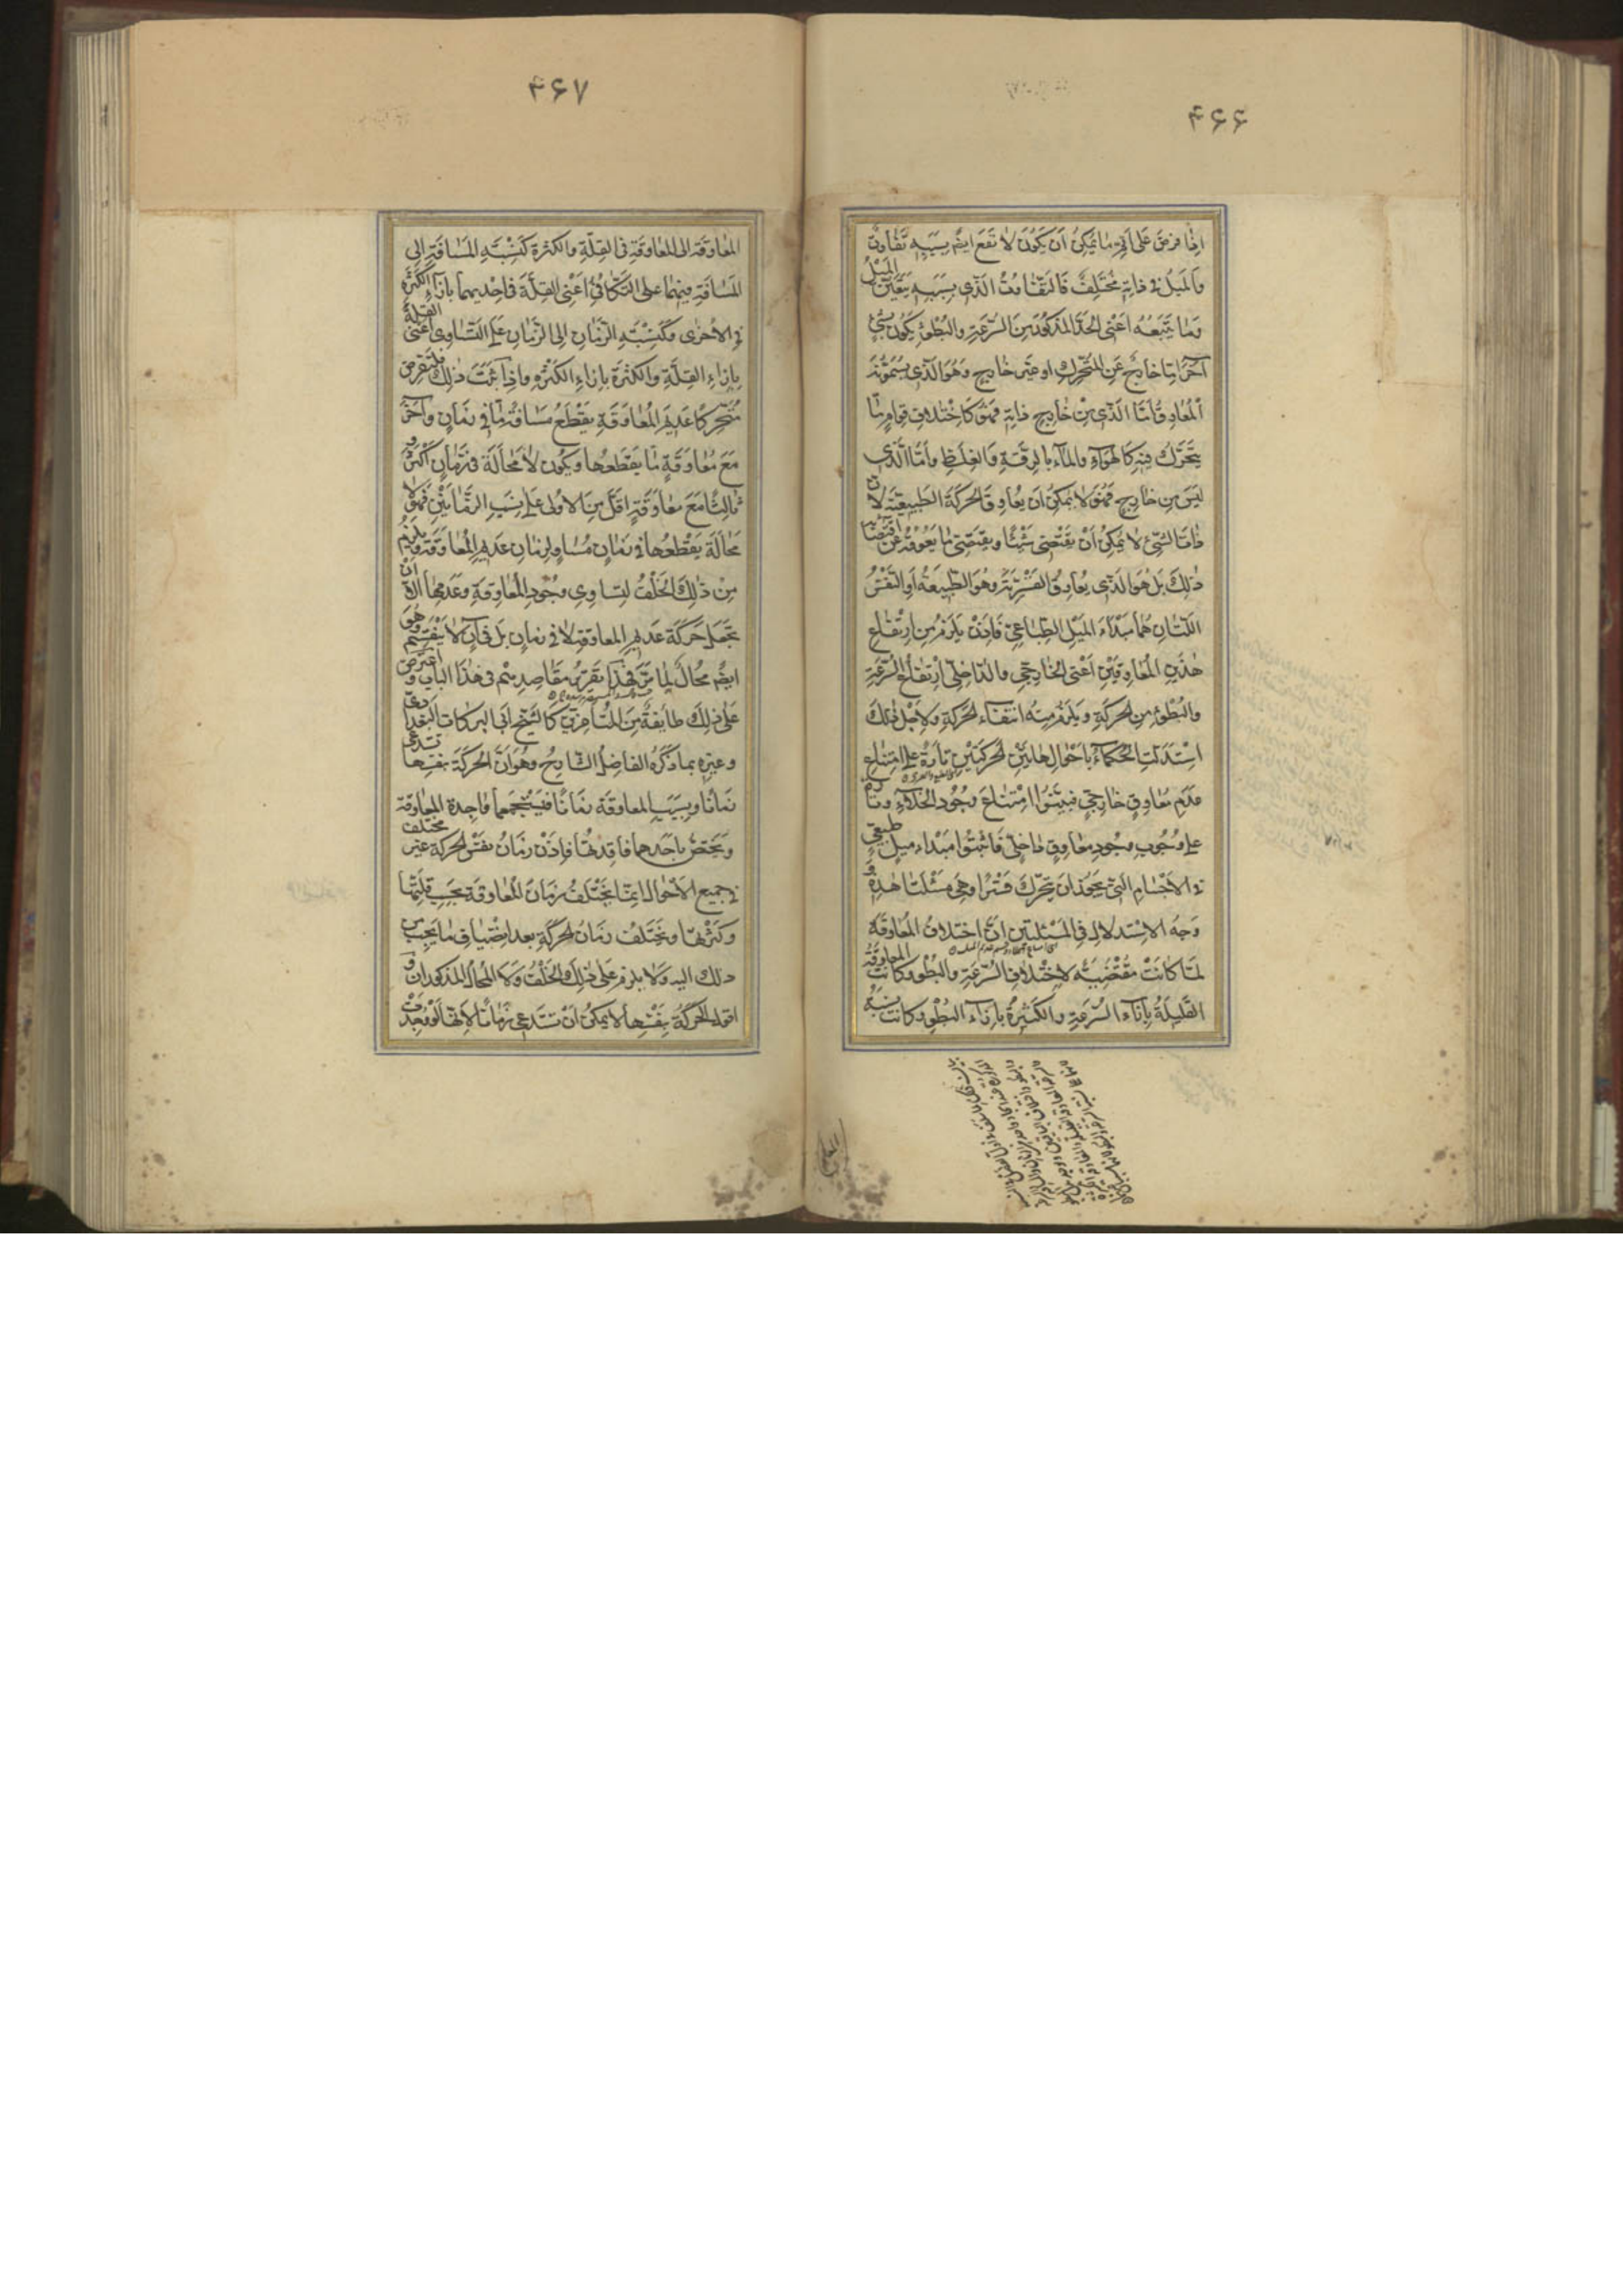 ۴۶۶
اذا فرض على اتم ما يمكن ان يكون لا تقع ايضًا بسببه تفاوت
والميل في ذاته مختلف فالتفاوت الذي بسببه يتعين الميل
وما يتبعه اعنى الحد المذكور من السرعة والبطؤ يكون بشئ
آخر اما خارج عن المتحرك او غير خارج وهو الذي يسمونه
المعاوق اما الذي من خارج ذاته فهو كاختلاف قوام ما
يتحرك فيه كالهواء والماء بالرقة والغلظ واما الذي
ليس من خارج فهو لا يمكن ان يعاوق الحركة الطبيعية لان
ذات الشئ لا يمكن ان يقتضى شيئًا ويقتضى ما يعوقه عن اقتضاء
ذلك بل هو الذي يعاوق القسرية وهو الطبيعة او النفس
اللتان هما مبداء الميل الطباعي فاذن يلزم من ارتفاع
هذين المعاوقين اعنى الخارجي والداخلي ارتفاع السرعة
والبطؤ من الحركة ويلزم منه انتفاء الحركة ولاجل ذلك
استدلت الحكماء باحوال هاتين الحركتين تارة على امتناع
عدم معاوق خارجي فبينوا امتناع وجود الخلاء وتارة
على وجوب وجود معاوق داخلي فاثبتوا مبداء ميل طبيعي
في الاجسام التي يجوز ان يتحرك قسرا وهي مسئلتنا هذه و
وجه الاستدلال في المسئلتين ان اختلاف المعاوقة
لما كانت مقتضية لاختلاف السرعة والبطؤ كانت المعاوقة
القليلة بازاء السرعة والكثيرة بازاء البطؤ وكانت نسبة
۴۶۷
المعاوقة الى المعاوقة في القلة والكثرة كنسبة المسافة الى
المسافة فيهما على التكافئ اعنى القلة في احديهما بازاء الكثرة
في الاخرى وكنسبة الزمان الى الزمان على التساوى اعنى القلة
بازاء القلة والكثرة بازاء الكثرة واذا ثبت ذلك فلنفرض
متحركا عديم المعاوقة يقطع مسافة ما في زمان وآخر
مع معاوقة ما يقطعها ويكون لا محالة في زمان اكثر و
ثالثا مع معاوقة اقل من الاولى على نسب الزمانين فهو لا
محالة يقطعها في زمان مساو لزمان عديم المعاوقة ويلزم
من ذلك الخلف لتساوي وجود المعاوقة وعدمها الا ان
تجعل حركة عديم المعاوقة لا في زمان بل في آن لا ينقسم وهو
ايضًا محال لما مر فهذا تقرير مقاصدهم في هذا الباب و اعترض
على ذلك طايفة من المتأخرين كالشيخ ابي البركات البغدادي
وغيره بما ذكره الفاضل الشارح وهو ان الحركة بنفسها تستدعى
زمانا وبسبب المعاوقة زمانا فيستجمعهما واجدة المعاوقة
ويختص باحدهما فاقدتها فاذن زمان نفس الحركة غير مختلف
في جميع الاحوال انما يختلف زمان المعاوقة بحسب قلتها
وكثرتها ويختلف زمان الحركة بعد انضياف ما يجب من
ذلك اليه ولا يلزم على ذلك الخلف ولا المحال المذكوران و
اقول الحركة بنفسها لا يمكن ان تستدعى زمانا لانها لو وجدت